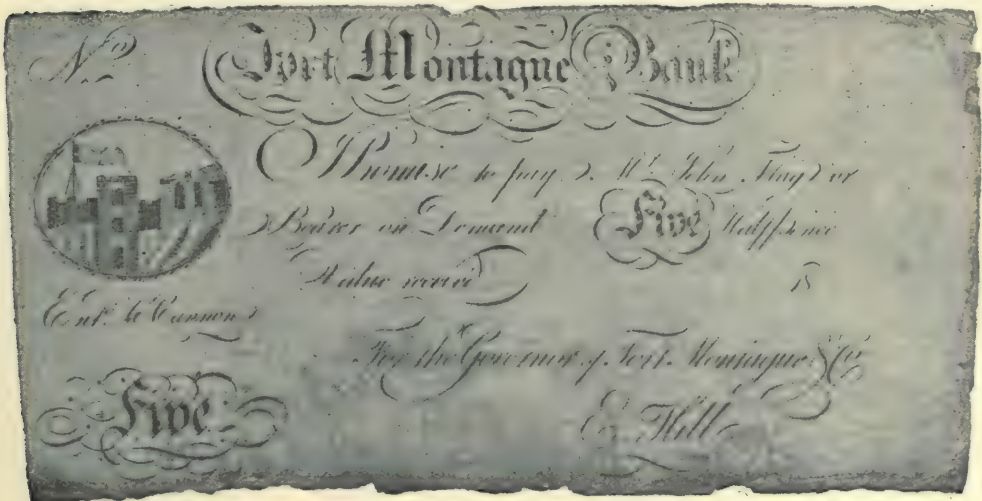 No
Fort Montague Bank
I Promise to pay Mr. John Flag or
Bearer on Demand Five Halfpence
Value receiv'd 18
Entd. W Cannon
For the Governor of Fort Montague & Co
Five
E. Hill